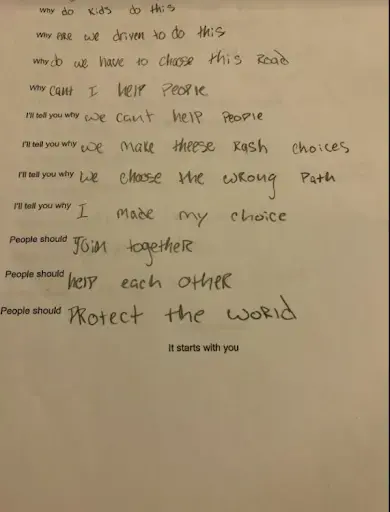 Why do kids do this
Why are we driven to do this
Why do we have to choose this Road
Why cant I help People
I'll tell you why we cant help People
I'll tell you why we make theese Rash choices
I'll tell you why we choose the wrong Path
I'll tell you why I made my choice
People should Join together
People should help each other
People should PRotect the world
It starts with you